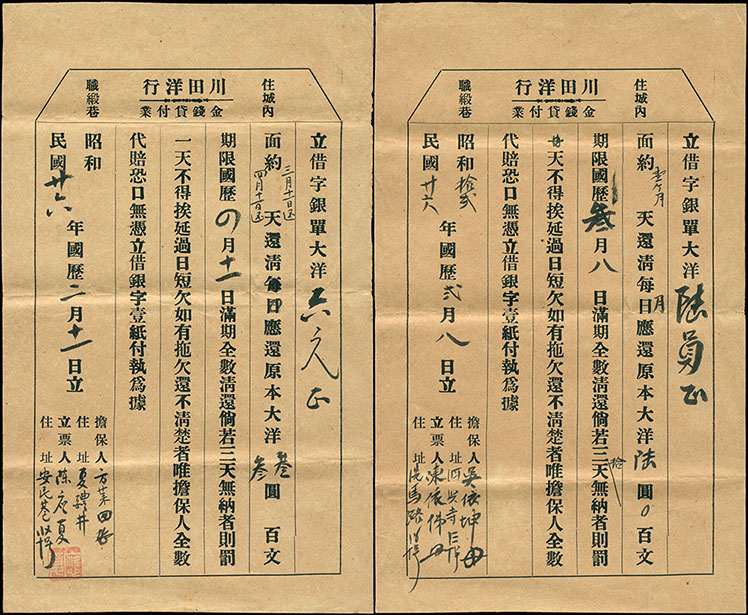 住城內
川田洋行
金錢貸付業
職緞巷
立借字銀單大洋陸員正
面約壹ケ月天還清每日月應還原本大洋陸圓0百文
期限國歷叁月八日滿期全數清還倘若三天無納者則罰
天不得挨延過日短欠如有拖欠還不清楚者唯擔保人全數
代賠恐口無憑立借銀字壹紙付執爲據
昭和拾貳
民國廿六年國歷弍月八日立
擔保人吳依坤
住址
立票人陳依俤
住址洗馬路
住城內
川田洋行
金錢貸付業
職緞巷
立借字銀單大洋六元正
面約三月十一日还四月十一日还天還清每日應還原本大洋叁叁圓百文
期限國歷四月十一日滿期全數清還倘若三天無納者則罰
一天不得挨延過日短欠如有拖欠還不清楚者唯擔保人全數
代賠恐口無憑立借銀字壹紙付執爲據
昭和
民國廿六年國歷二月十一日立
擔保人方葉
住址夏醴井
立票人陳
住址安民巷